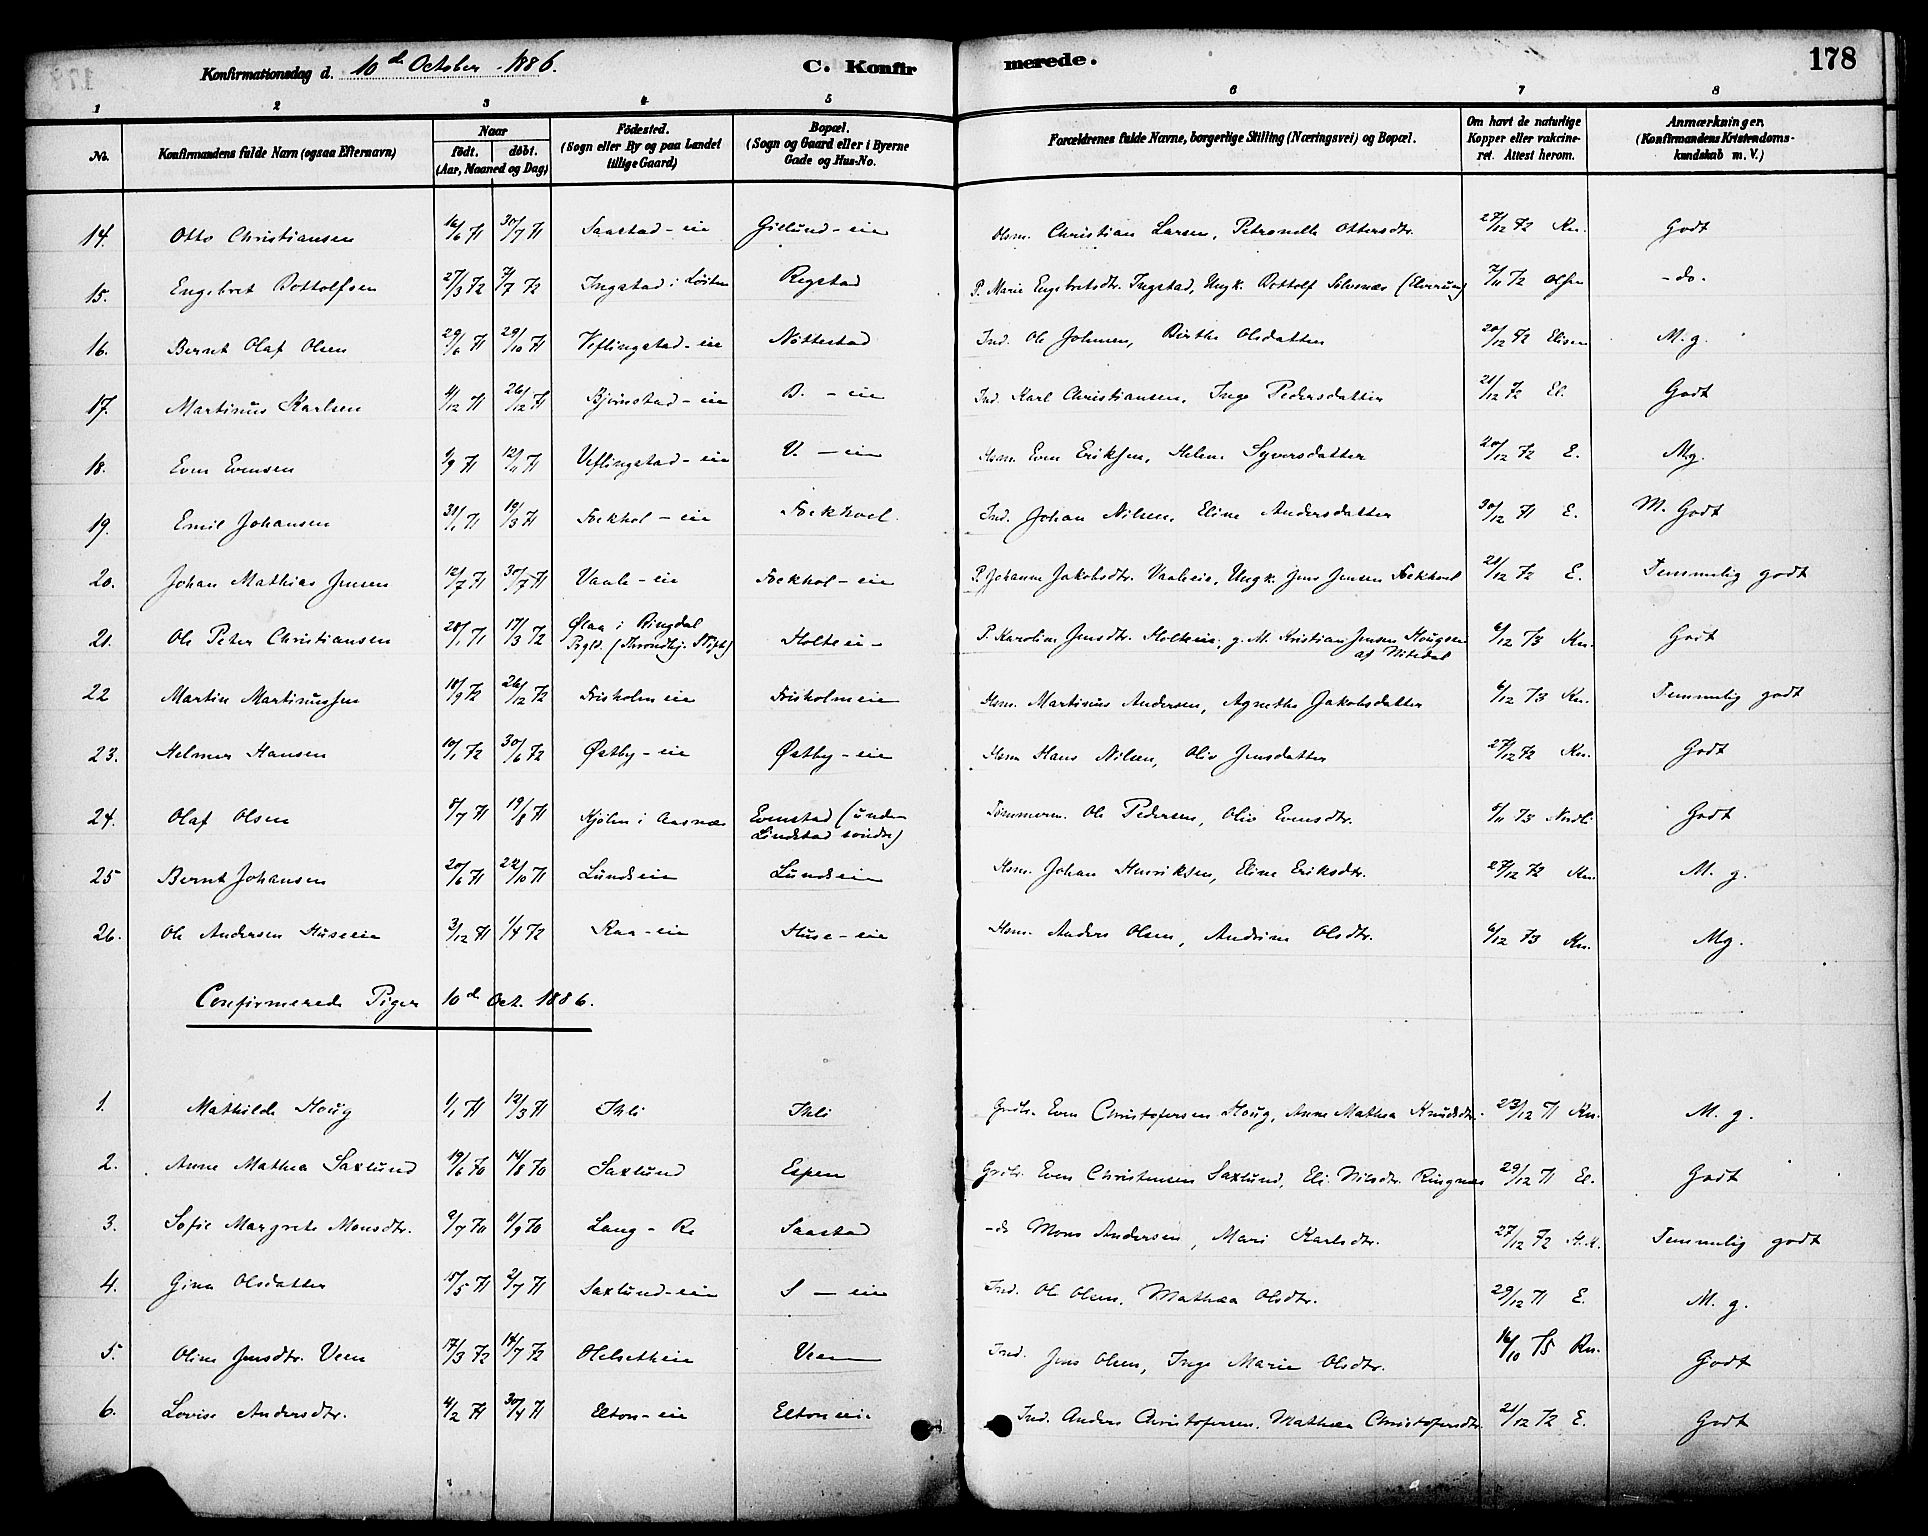 Konfirmationsdag d. 10de October 1886. C. Konfirmerede. 178
1 2 3 4 5 6 7 8
No. Konfirmandens fulde Navn (ogsaa Efternavn) Naar født. døbt. (Aar, Maaned og Dag) Fødested. (Sogn eller By og paa Landet tillige Gaard) Bopæl. (Sogn og Gaard eller i Byerne Gade og Hus-No. Forældrenes fulde Navne, borgerlige Stilling (Næringsvei) og Bopæl. Om havt de naturlige Kopper eller vakcineret. Attest herom. Anmærkninger. (Konfirmandens Kristendomskundskab m. V.)
14. Otto Christiansen 16/6 71 30/7 71 Saastad-eie Gielund-eie Hsm. Christian Larsen, Petronelle Ottersdtr. 27/12 72 Kn. Godt
15. Engebret Dottolfsen 27/3 72 7/7 72 Ingstad i Løiten Regstad P. Marie Engebretsdtr. Ingstad, Ungk. Dottolf (Elverum) 7/11 72 Olsen -do-
16. Bernt Olaf Olsen 29/6 71 29/10 71 Veflingstad-eie Nöttestad Ind. Ole Johnsen, Birthe Olsdatter 20/12 72 Elisen M. g.
17. Martinus Karlsen 4/12 71 26/12 71 Bjørnstad-eie B. - eie Ind. Karl Christiansen, Inge Pedersdatter 21/12 72 El. Godt
18. Even Evensen 9/9 71 12/11 71 Veflingstad-eie V. - eie Hsm. Even Eriksen, Helene Syversdatter 20/12 72 E. Mg.
19. Emil Johansen 31/1 71 19/3 71 Fokhol-eie Fokhoel. Ind. Johan Nilsen, Eline Andersdatter 30/12 71 E. M. Godt
20. Johan Mathias Jensen 12/7 71 30/7 71 Vaale-eie Fokhol-eie P. Johanne Jakobsdtr. Vaaleeie, Ungk. Jens Jensen Fokhoel 21/12 72 E. Temmelig godt
21. Ole Peter Christiansen 28/1 71 17/3 72 Ølaa i Bingdal Prgld. (Throndhj. Stift) Holteeie P. Karoline Jensdtr. Holteeie, g. M. Kristian Jensen Hougsen af Nitedal 6/12 73 Kn. Godt
22 Martin Martinussen 18/9 72 26/12 72 Frisholmeie Frisholmeie Hsm. Martinus Andersen, Agnethe Jakobsdatter 6/12 73 Kn. Temmelig godt
23. Helmer Hansen 10/1 72 30/6 72 Østby-eie Østby-eie Hsm Hans Nilsen, Oliv Jensdatter 27/12 72 Kn. Godt
24. Olaf Olsen 8/7 71 19/8 71 Kjølen i Aasnæs Evenstad (under Lindstad søndre) Tømmerm. Ole Pedersen, Oliv Evensdtr. 8/11 73 Nordli Godt
25 Bernt Johansen 20/6 71 22/10 71 Lundseie Lundseie Hsm. Johan Henriksen, Eline Eriksdtr. 27/12 72 Kn. M. g.
26. Ole Andersen Huseeie 3/12 71 1/4 72 Raa-eie Huse-eie Hsm. Anders Olsen, Andrine Olsdtr. 6/12 73 Kn. Mg.
Confirmerede Piger 10de Oct. 1886.
1. Mathilde Houg 1/1 71 12/3 71 Ihli Ihli Grdbr. Even Christofersen Houg, Anne Mathea Knudsdtr. 23/12 71 Kn. M. g.
2. Anne Mathea Saxlund 19/6 70 14/8 70 Saxlund Espen Grdbr. Even Christensen Saxlund, Eli Nilsdtr. Ringnæs 29/12 71 El. Godt
3. Sofie Margrete Monsdtr. 9/7 70 11/9 70 Lang-Re Saastad -do Mons Andersen, Mari Karlsdtr. 27/12 72 Temmelig godt
4. Gina Olsdatter 15/5 71 2/7 71 Saxlund-eie S - eie Ind. Ole Olsen, Mathea Olsdtr. 29/12 71 E. M. g.
5. Oline Jensdtr. Veen 17/3 72 14/7 72 Helsetheie Veen Ind. Jens Olsen, Inge Marie Olsdtr. 16/10 75 Kn. Godt
6. Lovise Andersdtr. 4/2 71 30/4 71 Elton-eie Eltoneie Ind. Anders Christofersen. Mathea Christofersdtr. 21/12 72 E. Godt